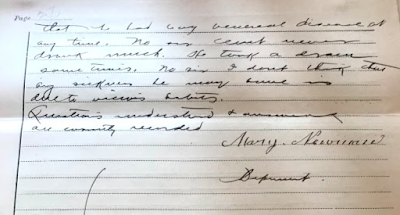 that he had any venereal disease at
any time. No sir never
drank much. He took a dram
sometimes. No sir I dont think that
any sickness he may have is
due to vicious habits.
Questions understood & answers
are correctly recorded
Mary
Deponent.